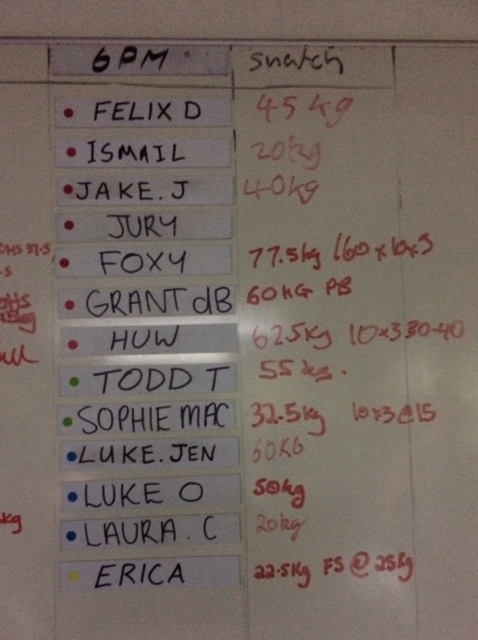 6PM snatch
FELIX D 45 kg
ISMAIL 20kg
JAKE.J 40kg
JURY
FOXY 77.5kg 160 x 10x3
GRANT dB 60KG PB
HUW 62.5kg 10x3 30-40
TODD T 55 kg.
SOPHIE MAC 32.5kg 10x3@15
LUKE.JEN 60KG
LUKE O 50kg
LAURA.C 20kg
ERICA 22.5kg FS @ 25kg